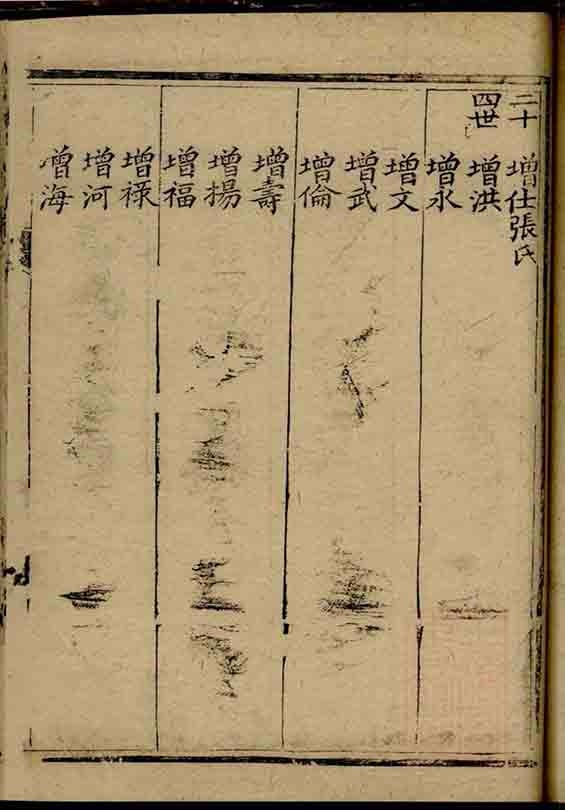 二十
四世
增仕張氏
增洪
增永
增文
增武
增倫
增壽
增揚
增福
增禄
增河
增海